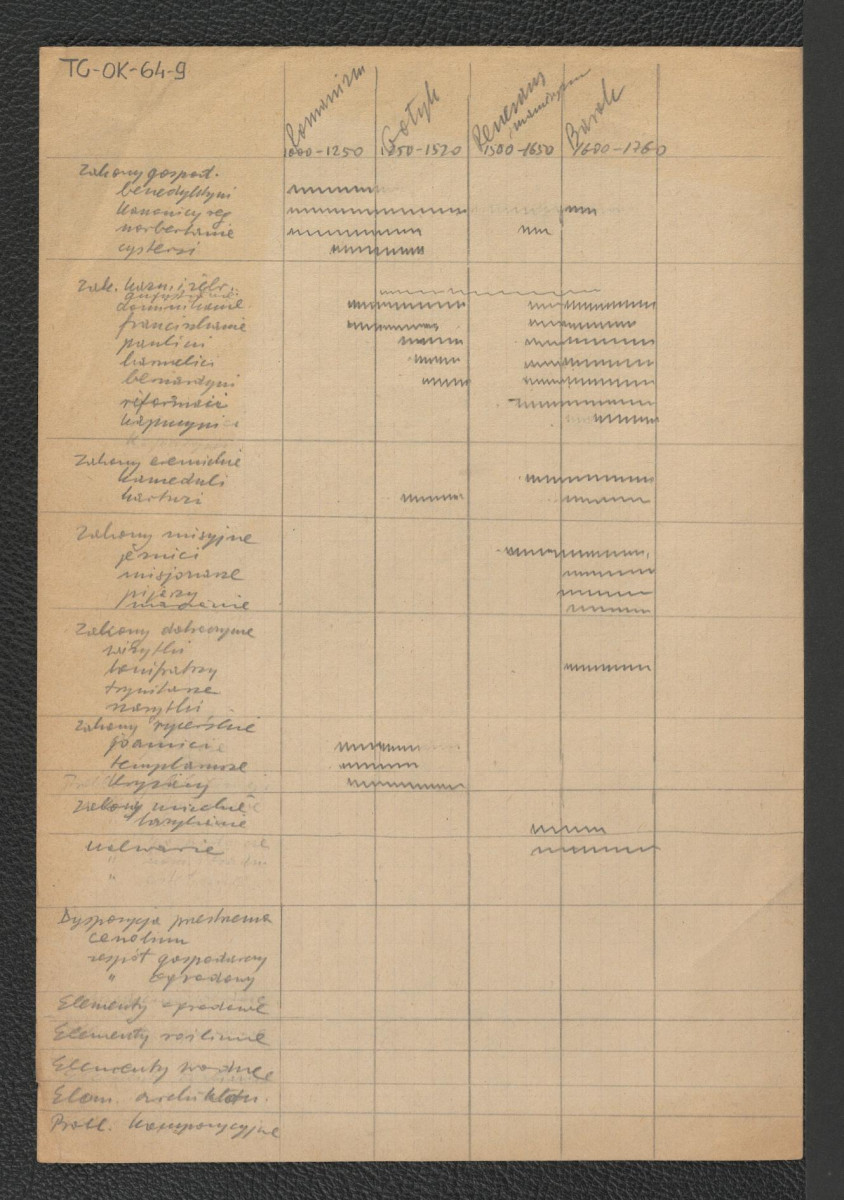 TG-OK-64-9
Romanizm
Gotyk
Renesans
manieryzm
Barok
1000-1250
1250-1520
1500-1650
1600-1760
Zakony gospod.
benedyktyni
kanonicy reg
norbertanie
cystersi
Zak. kazn. i żebr.
augustianie
dominikanie
franciszkanie
paulini
karmelici
bernardyni
reformaci
kapucyni
Zakony eremickie
kameduli
kartuzi
Zakony misyjne
jezuici
misjonarze
pijarzy
marianie
Zakony dobroczynne
bonifratrzy
trynitarze
Zakony rycerskie
joannici
templariusze
Krzyżacy
Zakony unickie
bazylianie
Kalwarie
"
"
Dyspozycja przestrzenna
cenobium
zespół gospodarczy
" ogrodowy
Elementy ogrodowe
Elementy roślinne
Elementy wodne
Elem. architekton.
Probl. kompozycyjne